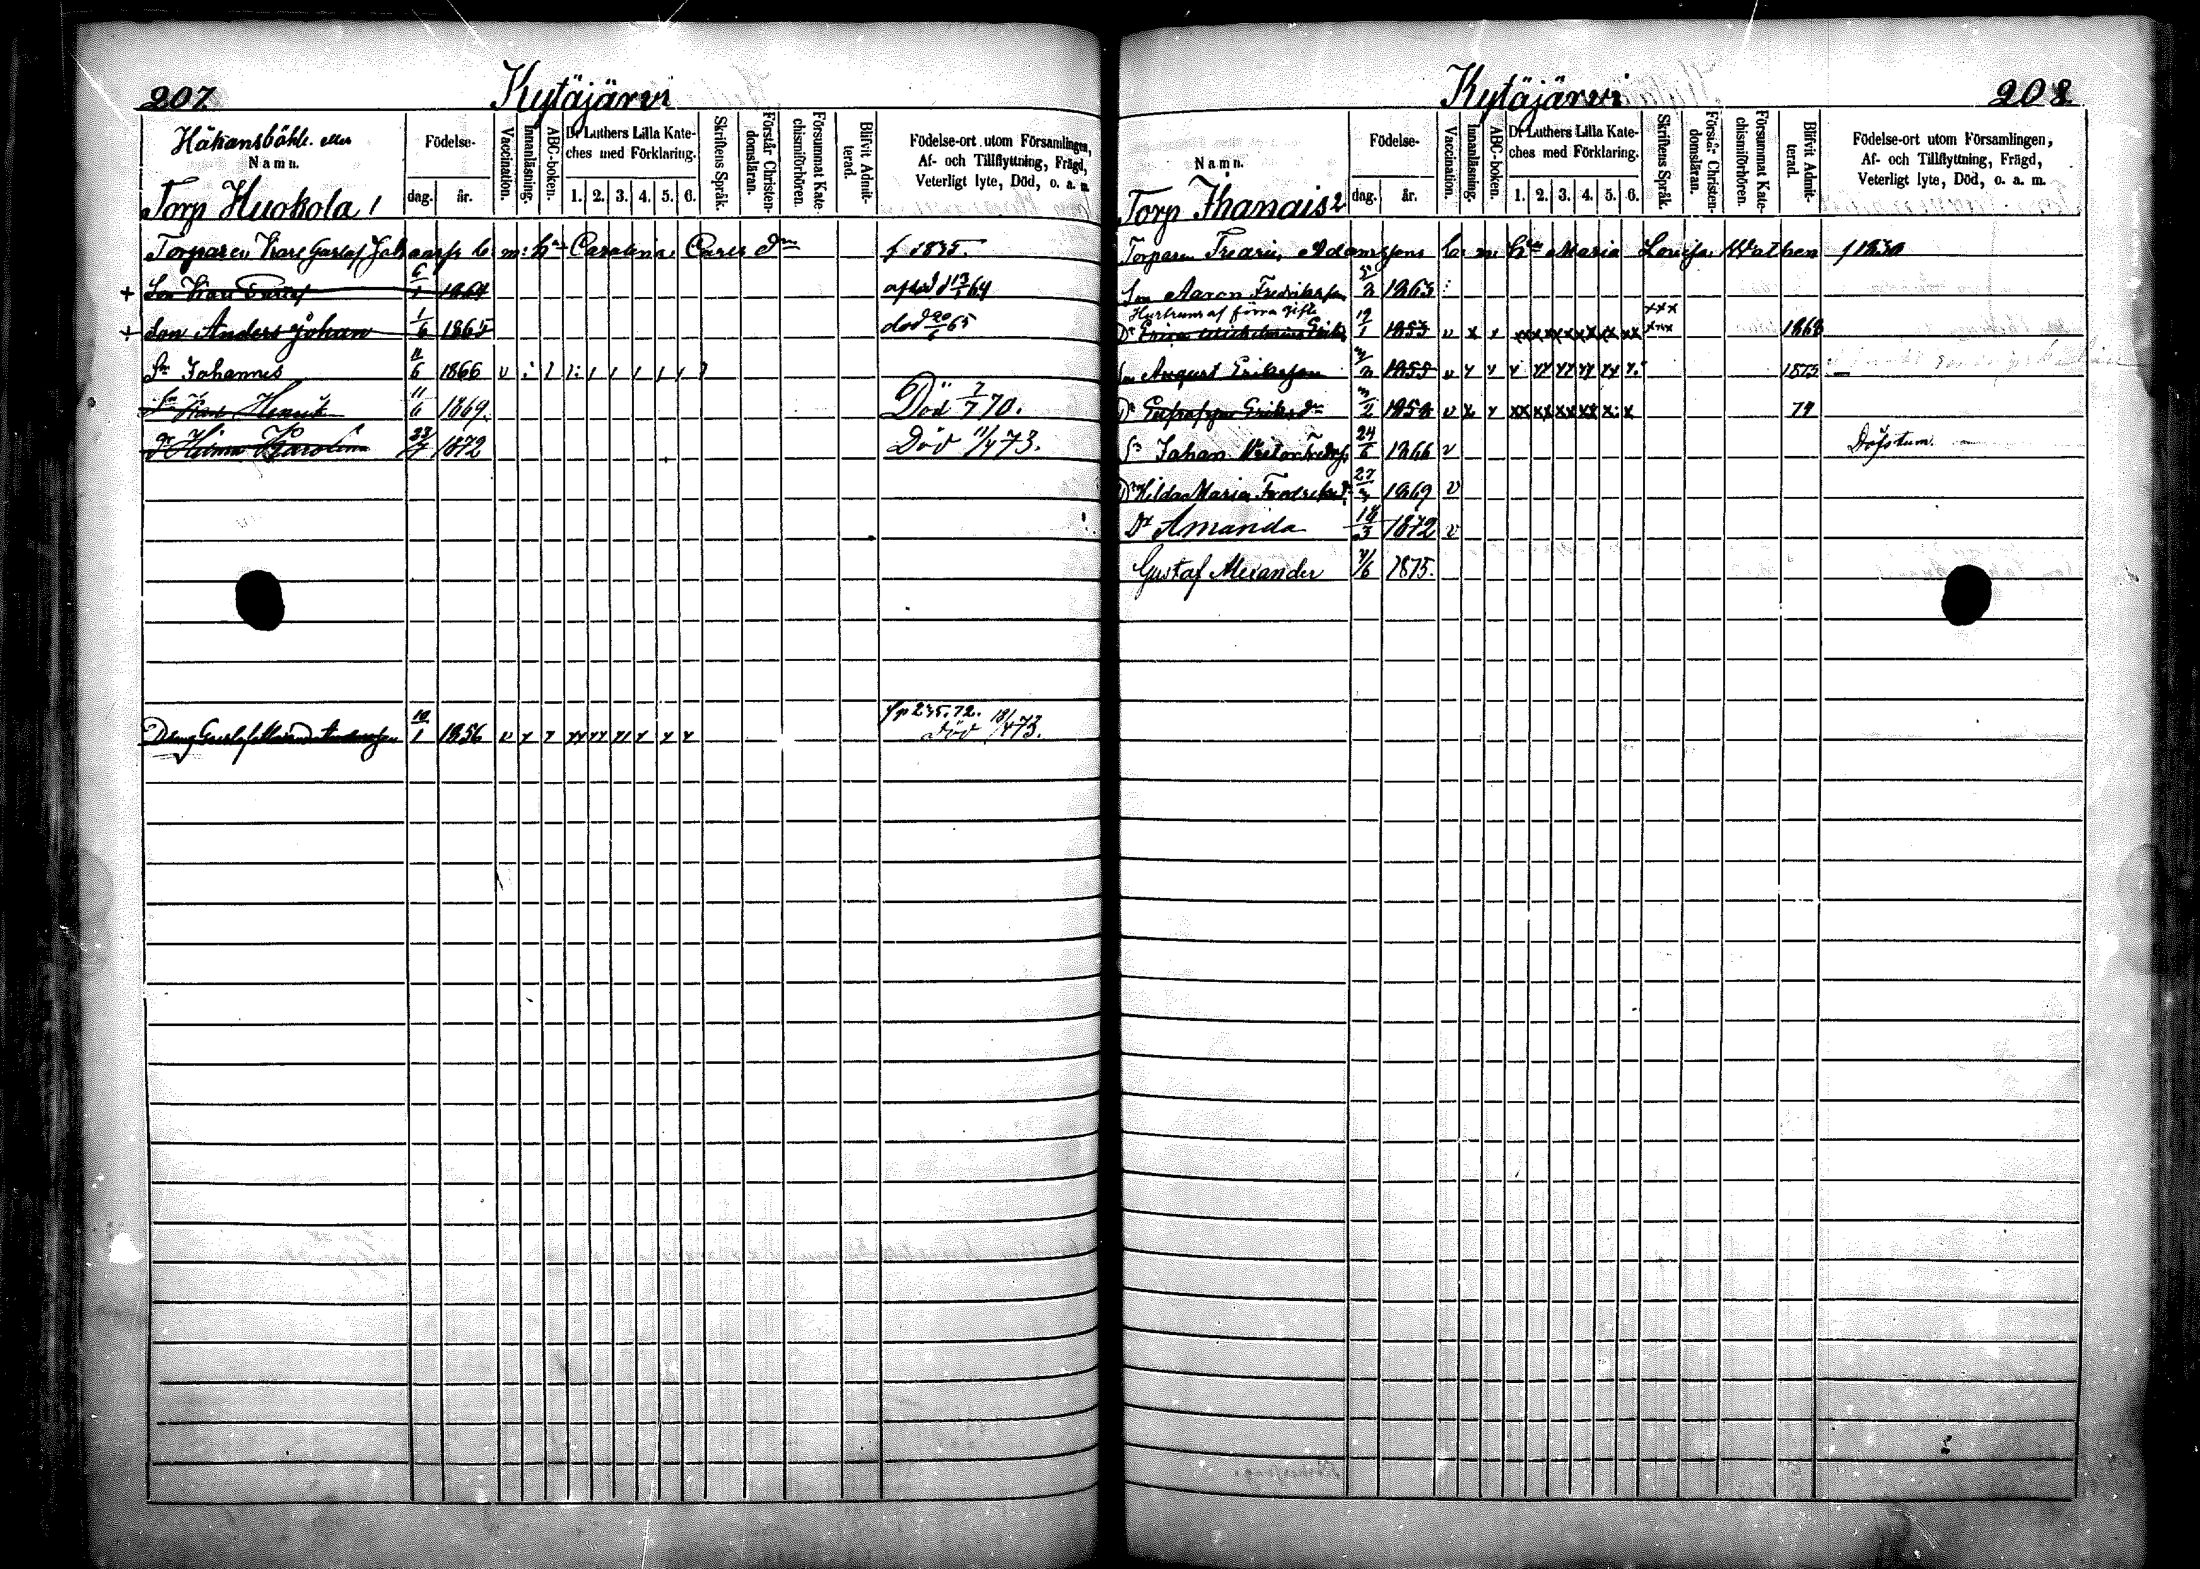 207
Kytäjärvi
Håkansböhle eller
Namn.
Torp Huokola 1
Födelse-
dag. år.
Vaccination.
Innanläsning.
ABC-boken.
Dr Luthers Lilla Kate-
ches med Förklaring.
1. 2. 3. 4. 5. 6.
Skriftens Språk.
Förstår Christen-
domsläran.
Försummat Kate-
chismiförhören.
Blifvit Admit-
terad.
Födelse-ort utom Församlingen,
Af- och Tillflyttning, Frägd,
Veterligt lyte, Död, o. a. m.
Torparen Karl Gustaf m: h: Carolina Carls dr f 1835.
+ Son Karl 6/1 1864 13/1 64
+ Son Anders Johan 1/6 1865 död 20/6 65
Sn Johannes 11/6 1866 v
Sn Karl Henrik 11/6 1869. Död 7/7 70.
dr Hilma Karolina 23/7 1872 Död 11/4 73.
Dräng Gustaf Andersson 10/1 1856 v fr p 235. 72.
Död 18/4 73.
Kytäjärvi
208
Namn.
Torp Ihanais 2
Födelse-
dag. år.
Vaccination.
Innanläsning.
ABC-boken.
Dr Luthers Lilla Kate-
ches med Förklaring.
1. 2. 3. 4. 5. 6.
Skriftens Språk.
Förstår Christen-
domsläran.
Försummat Kate-
chismiförhören.
Blifvit Admit-
terad.
Födelse-ort utom Församlingen,
Af- och Tillflyttning, Frägd,
Veterligt lyte, Död, o. a. m.
Torparen Fredric Adamssons m: Maria Lovisa Wathen f 1830
Son Aaron Fredriksson 1863
Hustruns af förra gifte
Dr Erica Wilhelmina Eriks 12/1 1853 v x x xx xx xx xx xx xx xxx 1868
Sn August Eriksson 1855 v 1873
Dr Eriksdr 1858 v x x xx xx xx xx x x 74
Sn Johan Victor Fredrss 24/6 1866 v Döfstum.
Dr Hilda Maria Fredriks dr 27/3 1869 v
Dr Amanda 18/3 1872 v
Gustaf Alexander 4/6 1875.